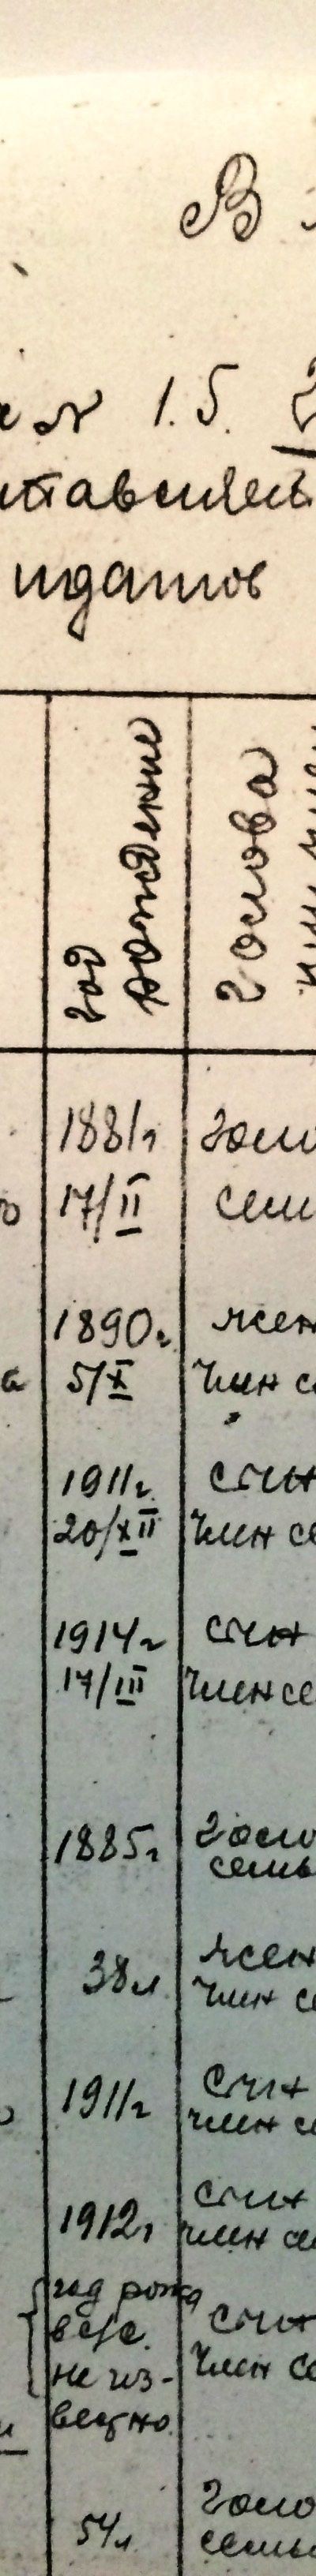 В
№ 1.5.
идатов
год рождение
голова
1881г
17/II
1890г
5/X
жен
член се
1911г
20/XII
сын
член се
1914г
17/III
сын
член се
1885г
голо
семь
38л
жен
член с
1911г
сын
член с
1912г
сын
член се
год рожд
не из-
вестно
сын
член се
54л
голо
семь